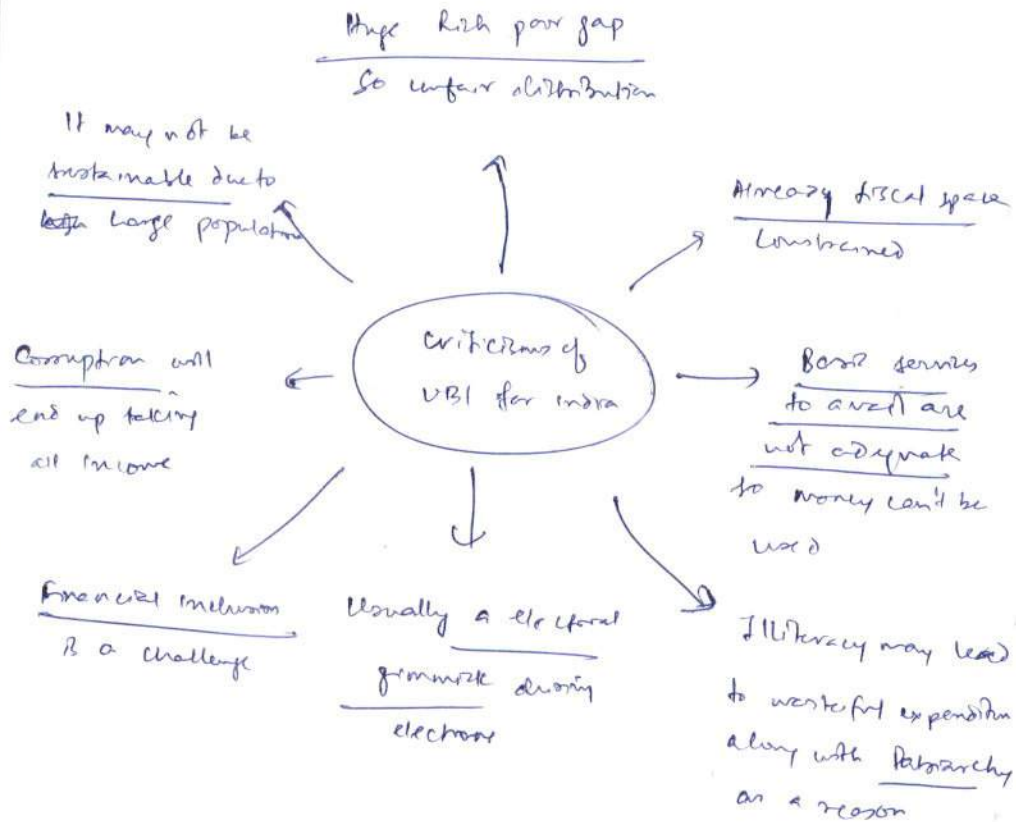 Huge Rich poor gap
So unfair distribution
It may not be
sustainable due to
large population
Already fiscal space
constrained
Criticisms of
UBI for india
Corruption will
end up taking
all income
Basic services
to avail are
not adequate
so money can't be
used
Financial inclusion
is a challenge
Usually a electoral
gimmick during
elections
Illiteracy may lead
to wasteful expenditure
along with Patriarchy
as a reason